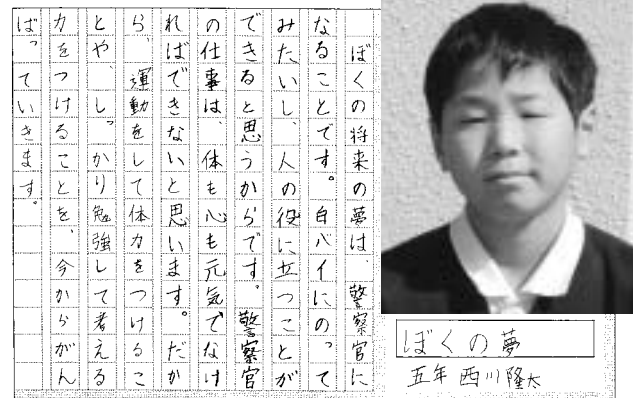 ぼくの夢
五年 西川隆太
ぼくの将来の夢は、警察官に
なることです。白バイにのって
みたいし、人の役に立つことが
できると思うからです。警察官
の仕事は、体も心も元気でなけ
ればできないと思います。だか
ら、運動をして体力をつけるこ
とや、しっかり勉強して考える
力をつけることを、今からがん
ばっていきます。